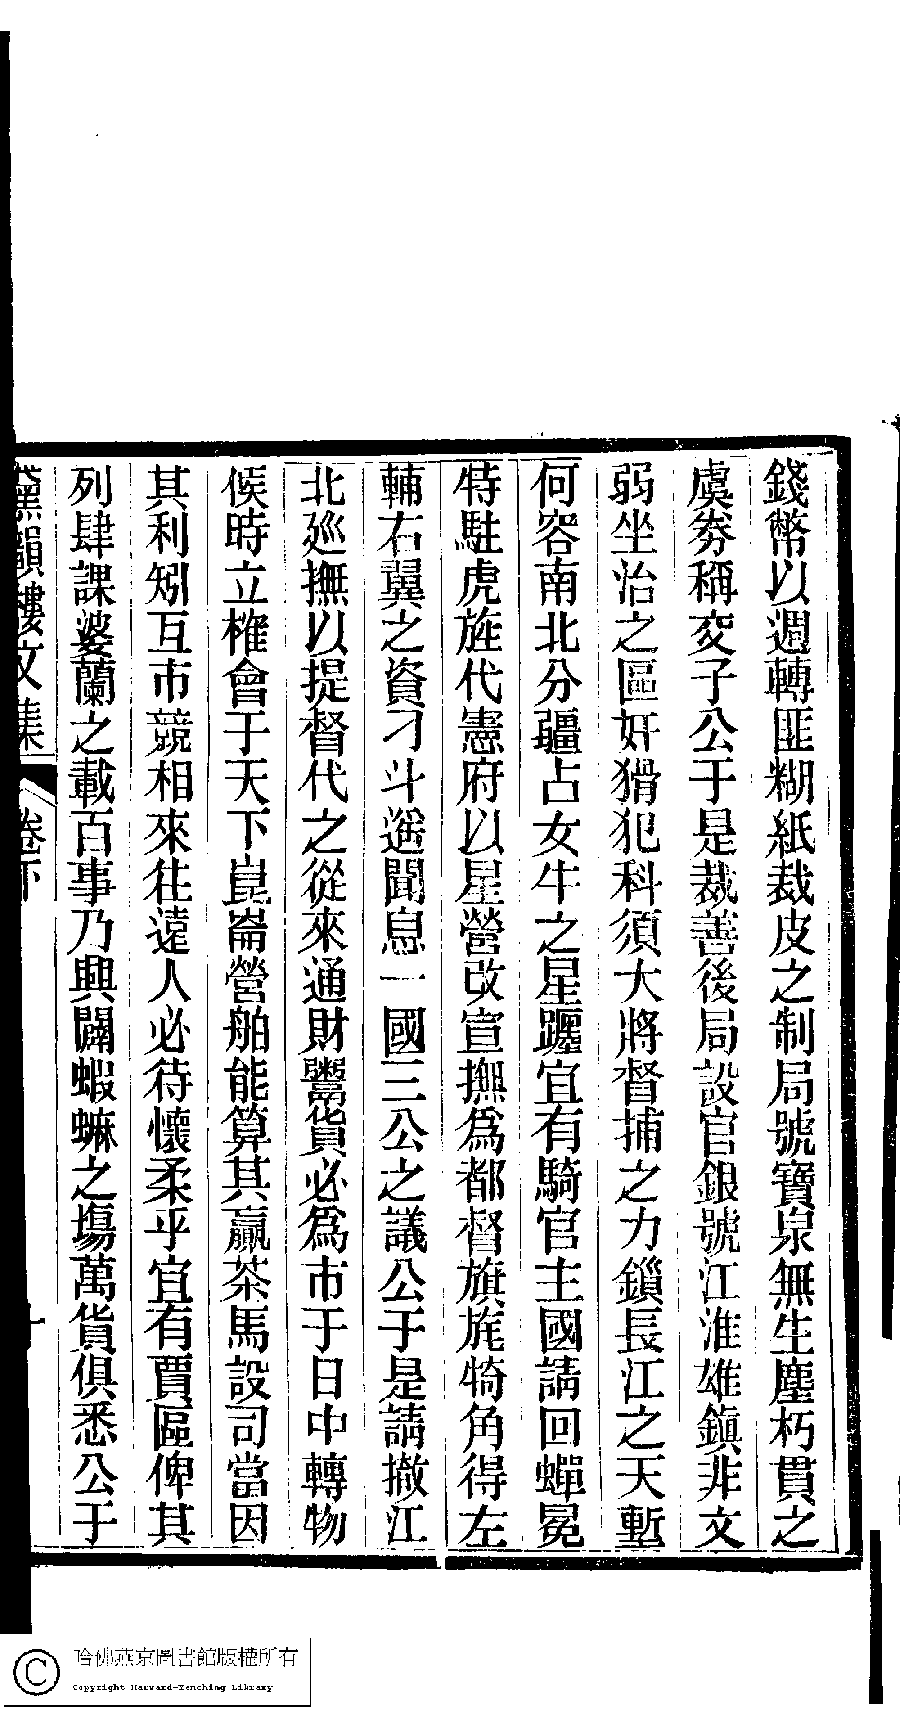 錢幣以週轉匪糊紙裁皮之制局號寶泉無生塵朽貫之
虞劵稱交子公于是裁善後局設官銀號江淮雄鎭非文
弱坐治之區奸猾犯科須大將督捕之力鎻長江之天塹
何容南北分疆占女牛之星躔宜有騎官主國請回蟬冕
特駐虎旌代憲府以星營改宣撫爲都督旗旄犄角得左
輔右翼之資刁斗遥聞息一國三公之議公于是請撤江
北廵撫以提督代之從來通財鬻貨必爲市于日中轉物
候時立榷會于天下崑崙營舶能算其贏茶馬設司當因
其利矧互市競相來往遠人必待懷柔乎宜有賈區俾其
列肆課婆蘭之載百事乃興闢蝦蟆之塲萬貨俱悉公于
黛韻樓文集
卷下
哈佛燕京圖書館版權所有
Copyright Harvard-Yenching Library